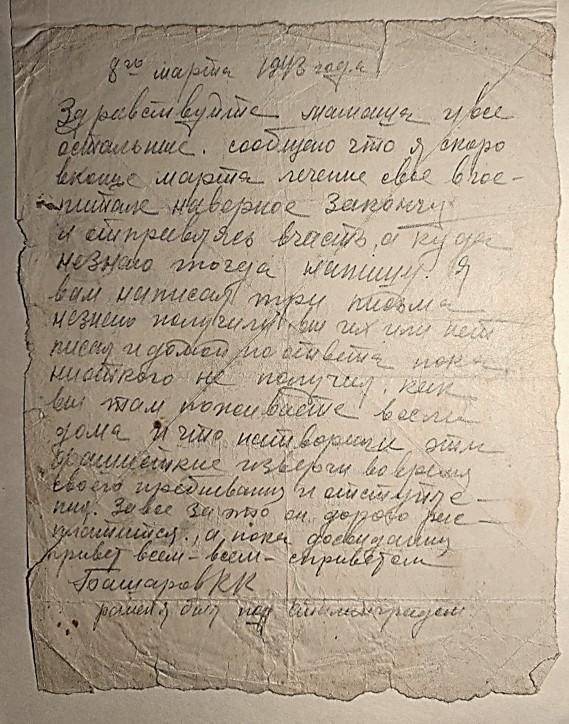 8го марта 1943 года
Здравствуйте мамаша и все
остальные. сообщаю что я скоро
вконце марта лечение свое вгос-
питале наверное закончу
и отправлясь вчасть, а куда
незнаю тогда напишу. Я
вам написал три письма
незнаю получили вы их или нет
писал и домой но ответа пока
ниоткого не получил. как
вы там поживаете
дома и что натворили эти
фашисткие изверги вовремя
своего пребывания и отступле-
ния. За все за это он дорого рас-
платится, а пока досвидания
привет всем-всем- сприветом
Башаров КК
ранен я был под Сталинградом